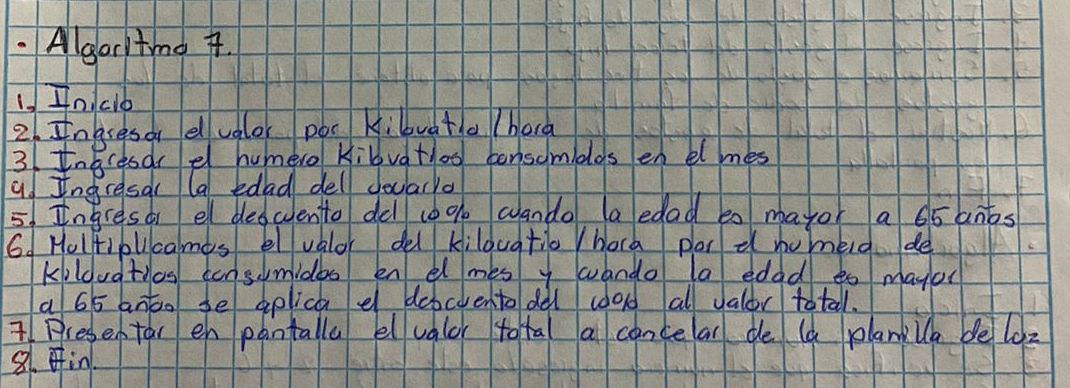 · Algoritmo 7.
1. Inicio
2. Ingresar el valor por Kilovatio / hora
3. Ingresar el numero Kilovatios consumidos en el mes
4. Ingresar la edad del usuario
5. Ingresar el descuento del 100% cuando la edad es mayor a 65 años
6. Multiplicamos el valor del kilovatio / hora por el numero de
Kilovatios consumidos en el mes y cuando la edad es mayor
a 65 años se aplica el descuento del 100% al valor total.
7. Presentar en pantalla el valor total a cancelar de la planilla de luz
8. Fin.